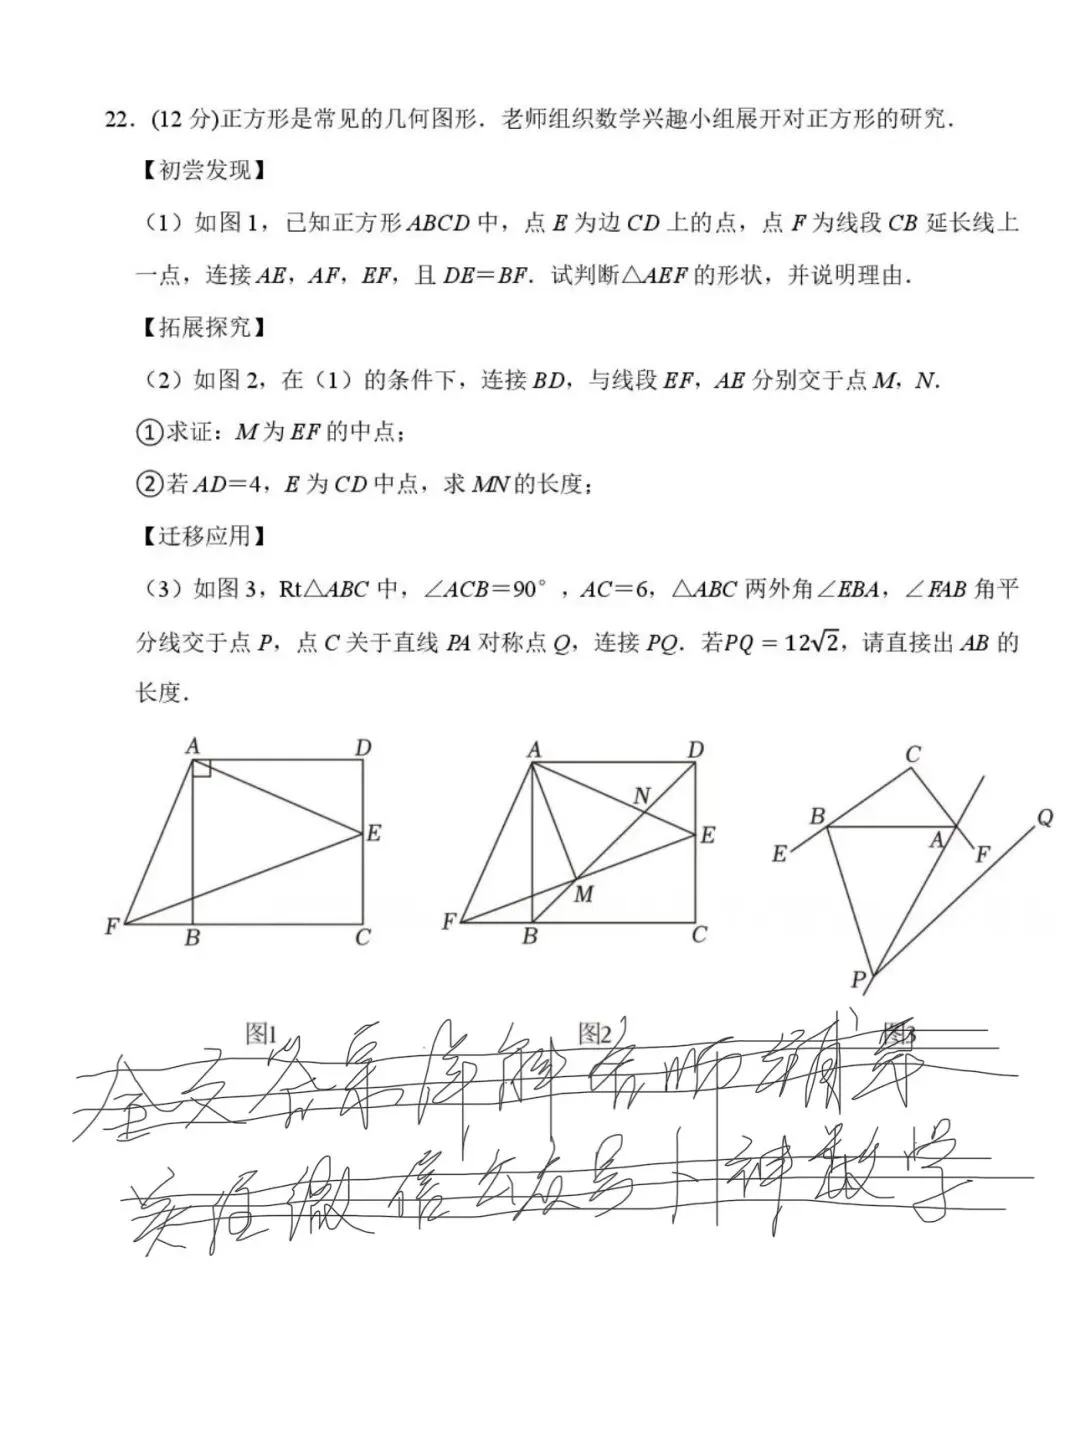 22．(12 分)正方形是常见的几何图形．老师组织数学兴趣小组展开对正方形的研究．
【初尝发现】
（1）如图 1，已知正方形 ABCD 中，点 E 为边 CD 上的点，点 F 为线段 CB 延长线上
一点，连接 AE，AF，EF，且 DE＝BF．试判断△AEF 的形状，并说明理由．
【拓展探究】
（2）如图 2，在（1）的条件下，连接 BD，与线段 EF，AE 分别交于点 M，N．
①求证：M 为 EF 的中点；
②若 AD＝4，E 为 CD 中点，求 MN 的长度；
【迁移应用】
（3）如图 3，Rt△ABC 中，∠ACB＝90°，AC＝6，△ABC 两外角∠EBA，∠FAB 角平
分线交于点 P，点 C 关于直线 PA 对称点 Q，连接 PQ．若PQ = 12√2，请直接出 AB 的
长度．
A D E F B C
A D N E M F B C
C B A Q E F P
图1 图2 图3
全文答案详解名师辅导
关注微信公众号卜神数学